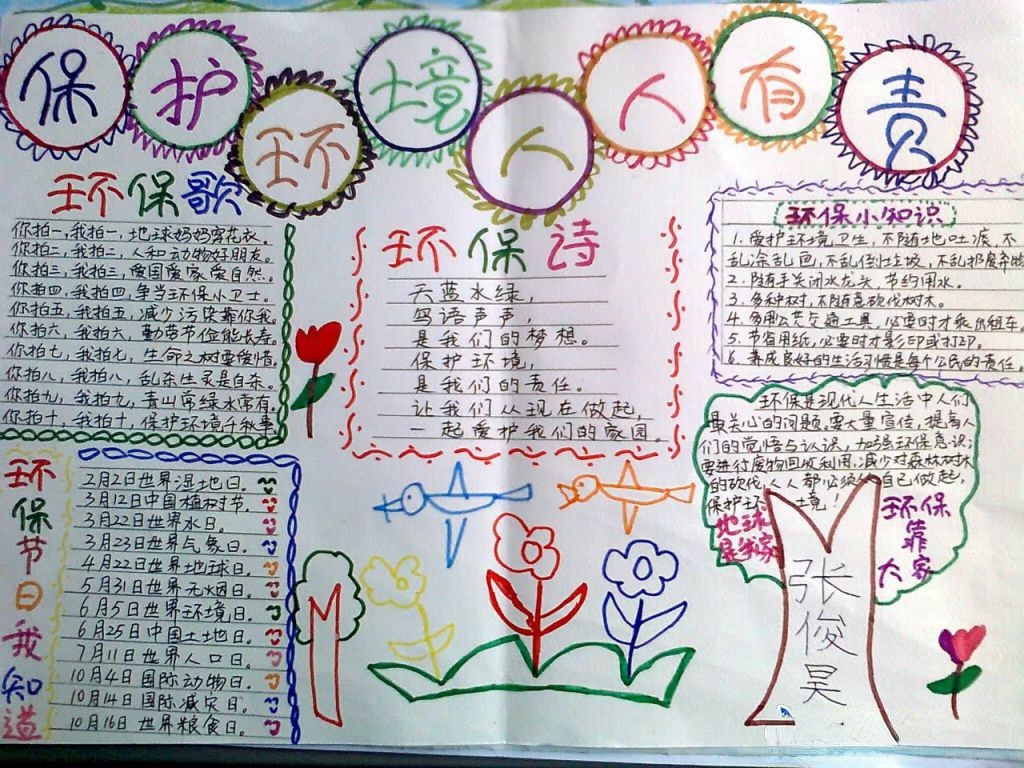 保护环境人人有责
环保歌
你拍一,我拍一,地球妈妈穿花衣。
你拍二,我拍二,人和动物好朋友。
你拍三,我拍三,爱国爱家爱自然。
你拍四,我拍四,争当环保小卫士。
你拍五,我拍五,减少污染靠你我。
你拍六,我拍六,勤劳节俭能长寿。
你拍七,我拍七,生命之树要爱惜。
你拍八,我拍八,乱杀生灵是自杀。
你拍九,我拍九,青山常绿水常有。
你拍十,我拍十,保护环境千秋事
环保诗
天蓝水绿,
鸟语声声,
是我们的梦想。
保护环境,
是我们的责任。
让我们从现在做起,
一起爱护我们的家园。
环保小知识
1. 爱护环境卫生,不随地吐痰,不
乱涂乱画,不乱倒垃圾,不乱扔废弃物
2. 随手关闭水龙头,节约用水。
3. 多种树,不随意砍伐树木。
4. 多用公共交通工具,必要时才乘出租车,
5. 节省用纸,必要时才影印或打印。
6. 养成良好的生活习惯是每个公民的责任,
环保是现代人生活中人们
最关心的问题,要大量宣传,提高人
们的觉悟与认识,加强环保意识;
要进行废物回收利用,减少对森林树木
的砍伐,人人都必须自己做起,
保护环境!
地球
是我家
环保
靠
大家
张俊昊
环保节日我知道
2月2日世界湿地日。
3月12日中国植树节。
3月22日世界水日。
3月23日世界气象日。
4月22日世界地球日。
5月31日世界无烟日。
6月5日世界环境日。
6月25日中国土地日。
7月11日世界人口日。
10月4日国际动物日。
10月14日国际减灾日。
10月16日世界粮食日。